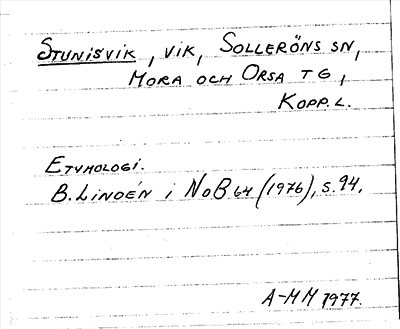 STUNISVIK, VIK, SOLLERÖNS SN,
MORA OCH ORSA TG,
KOPP. L.
ETYMOLOGI.
B. LINDÉN i NoB 64 (1976), S. 94.
A-MM 1977.